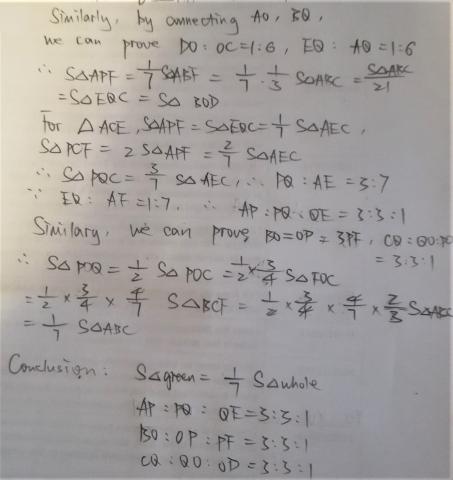 Similarly, by connecting AO, BQ,
we can prove DO:OC=1:6, EQ:AQ=1:6
∴ S△APF = 1/7 S△ABF = 1/7 · 1/3 S△ABC = S△ABC/21
= S△EQC = S△ BOD
For △ACE, S△APF = S△EQC = 1/7 S△AEC,
S△PCF = 2 S△APF = 2/7 S△AEC
∴ S△PQC = 3/7 S△AEC, ∴ PQ:AE = 3:7
∵ EQ:AE = 1:7, ∴ AP:PQ:QE = 3:3:1
Similarly, we can prove, BO=OP=3PF, CQ:QO:OD
= 3:3:1
∴ S△POQ = 1/2 S△POC = 1/2 × 3/4 S△FOC
= 1/2 × 3/4 × 4/7 S△BCF = 1/2 × 3/4 × 4/7 × 2/3 S△ABC
= 1/7 S△ABC
Conclusion: S△green = 1/7 S△whole
AP:PQ:QE=3:3:1
BO:OP:PF=3:3:1
CQ:QO:OD=3:3:1